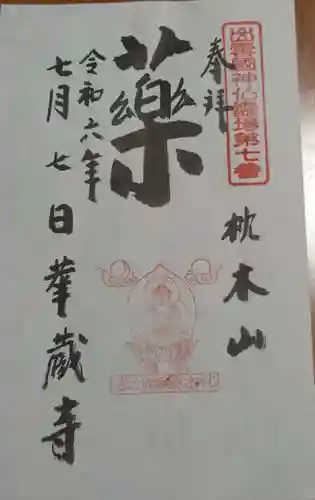 出雲國神仏霊場第七番
奉拜
枕木山
藥
令和六年
七月七日華蔵寺